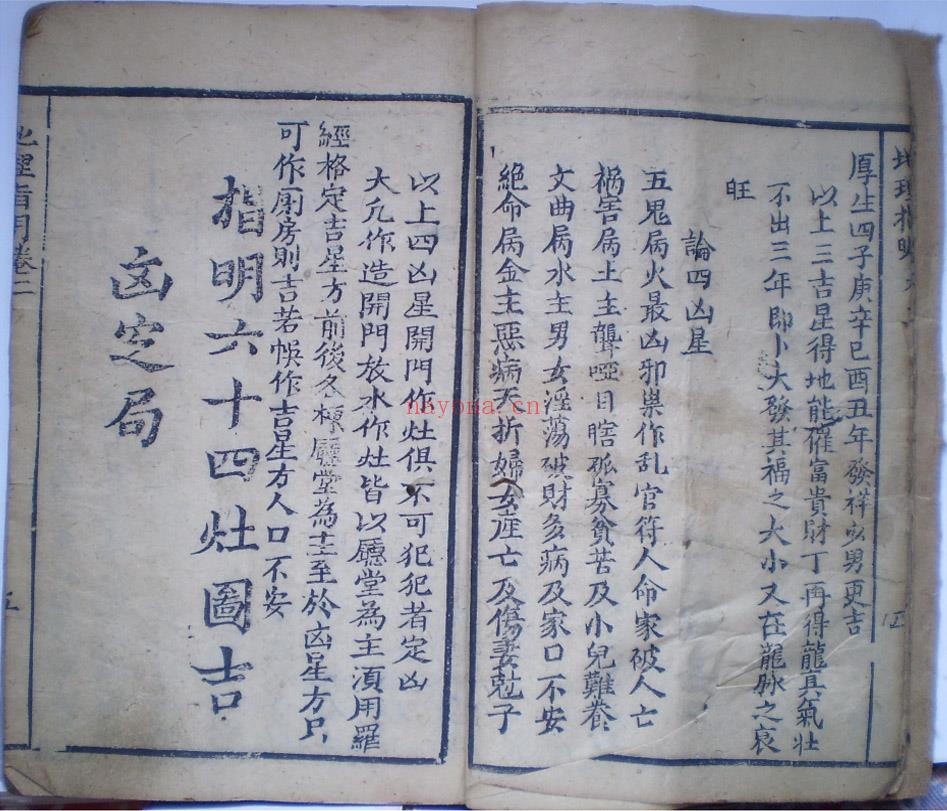 地理指明
厚生四子庚辛巳酉丑年發祥必男更吉
以上三吉星得地能催富貴財丁再得龍真氣壯
不出三年即卜大發其福之大小又在龍脉之衰
旺
論四凶星
五鬼病火最凶邪巣作乱官符人命家破人亡
禍害病土主聾啞目瞎孤寡貧苦及小兒難養
文曲病水主男女淫蕩破財多病及家口不安
絶命病金主惡病夭折婦人产亡及傷妻尅子
四
以上四凶星開門作灶俱不可犯犯者定凶
大凢作造開門放水作灶皆以廳堂為主湏用羅
經格定吉星方前後各棟廳堂為主至於凶星方只
可作厠房則吉若悞作吉星方人口不安
指明六十四灶圖吉
凶定局
地理指明卷二
五
nayona.cn